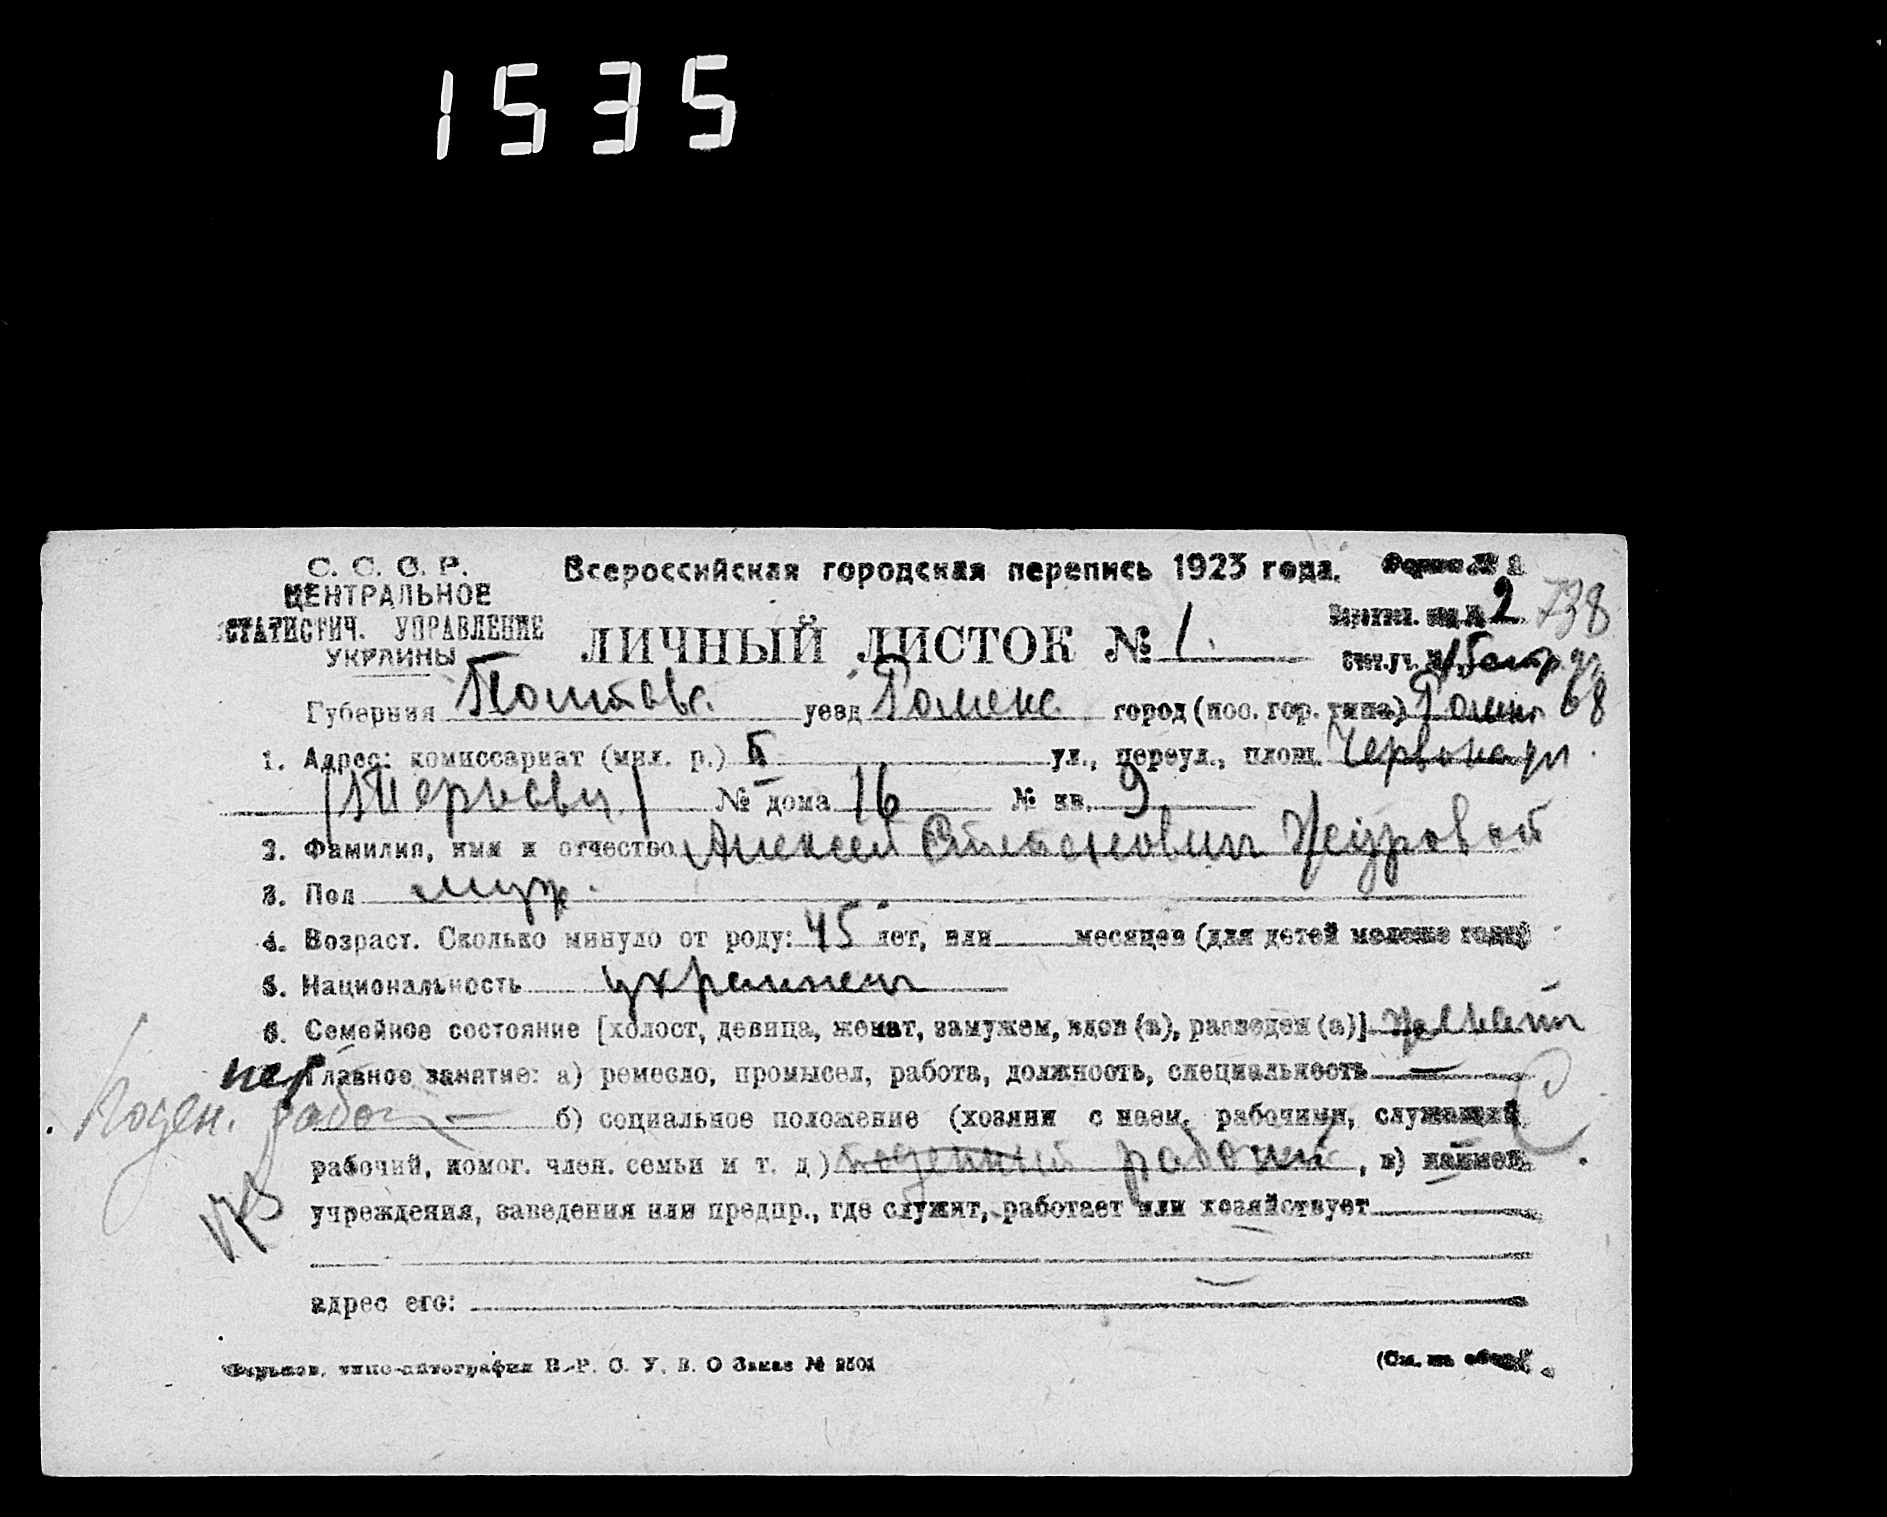 1535
С. С. С. Р.
ЦЕНТРАЛЬНОЕ
СТАТИСТИЧ. УПРАВЛЕНИЕ
УКРАИНЫ
Всероссийская городская перепись 1923 года.
Форма № 2
ЛИЧНЫЙ ЛИСТОК № 1.
2 738
15
Губерния Полтавс. уезд Роменс. город (пос. гор. типа) Ромны 68
1. Адрес: комиссариат (мил. р.) ул., переул., площ.
№ дома 16 № кв. 9
2. Фамилия, имя и отчество Алексей Степанович
3. Пол муж.
4. Возраст. Сколько минуло от роду: 45 лет, или месяцев (для детей моложе года)
5. Национальность украинец
6. Семейное состояние [холост, девица, женат, замужем, вдов (а), разведен (а)] женат
Главное занятие: а) ремесло, промысел, работа, должность, специальность —
Поден. рабоч — б) социальное положение (хозяин с наем. рабочими, служащий
рабочий, помог. член. семьи и т. д) поденный рабочий, в) наимен.
учреждения, заведения или предпр., где служит, работает или хозяйствует
адрес его:
Харьков, типо-литография В. Заказ №
(См. на обор.